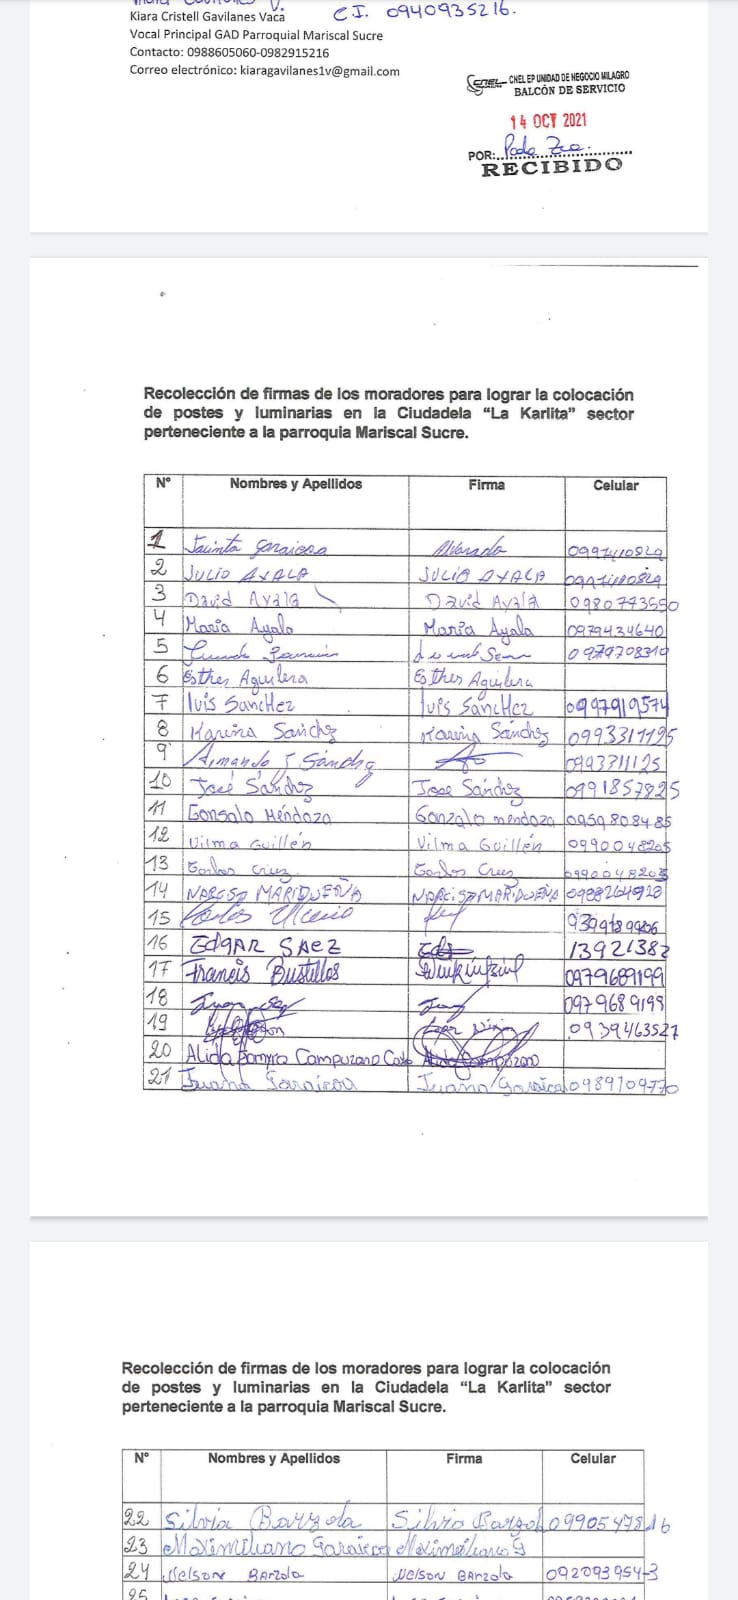 Kiara Cristell Gavilanes Vaca
C.I. 0940935216.
Vocal Principal GAD Parroquial Mariscal Sucre
Contacto: 0988605060-0982915216
Correo electrónico: kiaragavilanes1v@gmail.com
CNEL CNEL EP UNIDAD DE NEGOCIO MILAGRO
BALCÓN DE SERVICIO
14 OCT 2021
POR:
RECIBIDO
Recolección de firmas de los moradores para lograr la colocación
de postes y luminarias en la Ciudadela “La Karlita” sector
perteneciente a la parroquia Mariscal Sucre.
N° Nombres y Apellidos Firma Celular
1 Jacinta Garaicoa Alvarado
2 JULIO AYALA JULIO AYALA
3 David Ayala David Ayala 0980773550
4 Maria Ayala Maria Ayala 0979434640
5 0979708310
6 Esther Aguilera Esther Aguilera
7 luis SancHez luis SáncHez 0997919574
8 Karina Sanchez Karina Sánchez 0993311125
9 Armando Sánchez 0993711125
10 José Sánchez Jose Sánchez 0991857825
11 Gonsalo Méndoza Gonzalo mendoza 0959808485
12 Vilma Guillén Vilma Guillén 0990048205
13 Carlos Cruz. Carlos Cruz 0990048205
14 NARCISO MARIDUEÑA NARCISO MARIDUEÑA 0988264920
15 Carlos
16 EdgAR SAez 13921382
17 Francis Bustillos 0979689199
18 0979689199
19 0939463527
20 Alida Campuzano
21 Juana Garaicoa Juana Garaicoa 0989709770
Recolección de firmas de los moradores para lograr la colocación
de postes y luminarias en la Ciudadela “La Karlita” sector
perteneciente a la parroquia Mariscal Sucre.
N° Nombres y Apellidos Firma Celular
22 Silvia Barzola Silvia Barzola
23 Maximiliano Garaicoa Maximiliano G
24 Nelson Barzola Nelson Barzola 0920939543
25